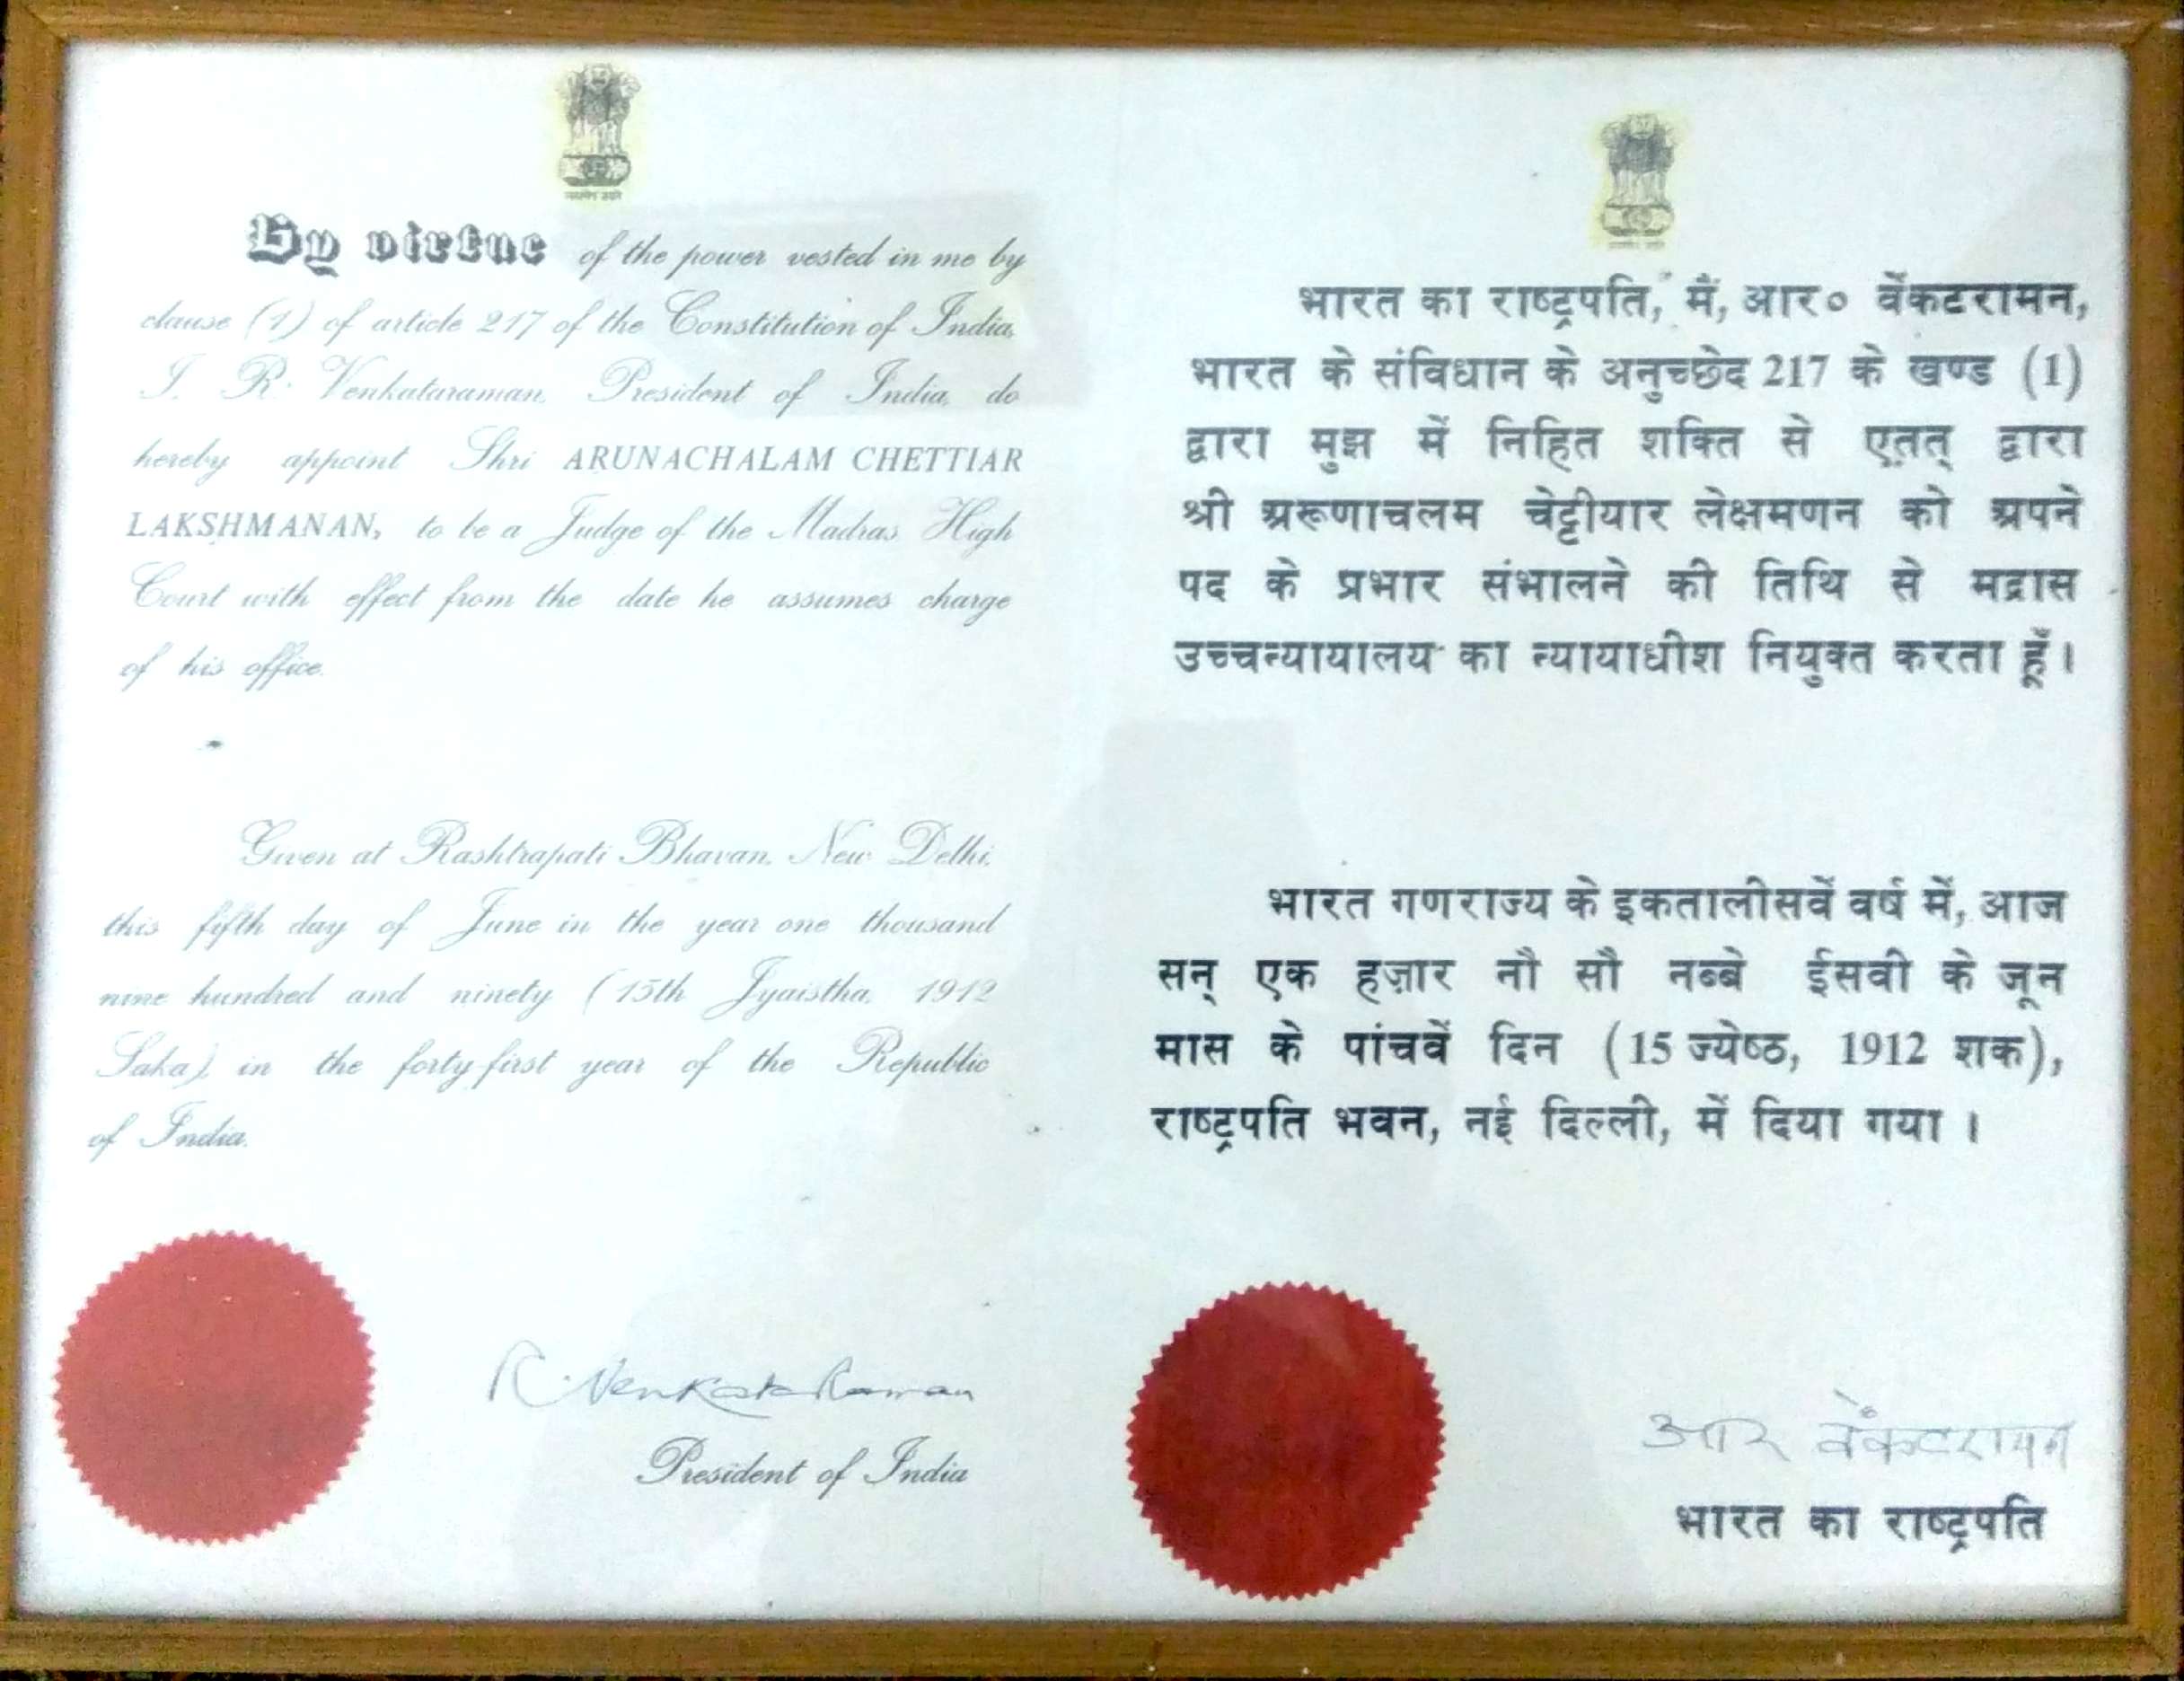 By virtue of the power vested in me by
clause (1) of article 217 of the Constitution of India,
I, R. Venkataraman, President of India, do
hereby appoint Shri ARUNACHALAM CHETTIAR
LAKSHMANAN, to be a Judge of the Madras High
Court with effect from the date he assumes charge
of his office.
Given at Rashtrapati Bhavan, New Delhi,
this fifth day of June in the year one thousand
nine hundred and ninety (15th Jyaistha, 1912
Saka) in the forty-first year of the Republic
of India.
R. Venkataraman
President of India
भारत का राष्ट्रपति, मैं, आर० वेंकटरामन,
भारत के संविधान के अनुच्छेद 217 के खण्ड (1)
द्वारा मुझ में निहित शक्ति से एतत् द्वारा
श्री अरूणाचलम चेट्टीयार लेक्षमणन को अपने
पद के प्रभार संभालने की तिथि से मद्रास
उच्चन्यायालय का न्यायाधीश नियुक्त करता हूँ।
भारत गणराज्य के इकतालीसवें वर्ष में, आज
सन् एक हज़ार नौ सौ नब्बे ईसवी के जून
मास के पांचवें दिन (15 ज्येष्ठ, 1912 शक),
राष्ट्रपति भवन, नई दिल्ली, में दिया गया ।
आर वेंकटरामन
भारत का राष्ट्रपति